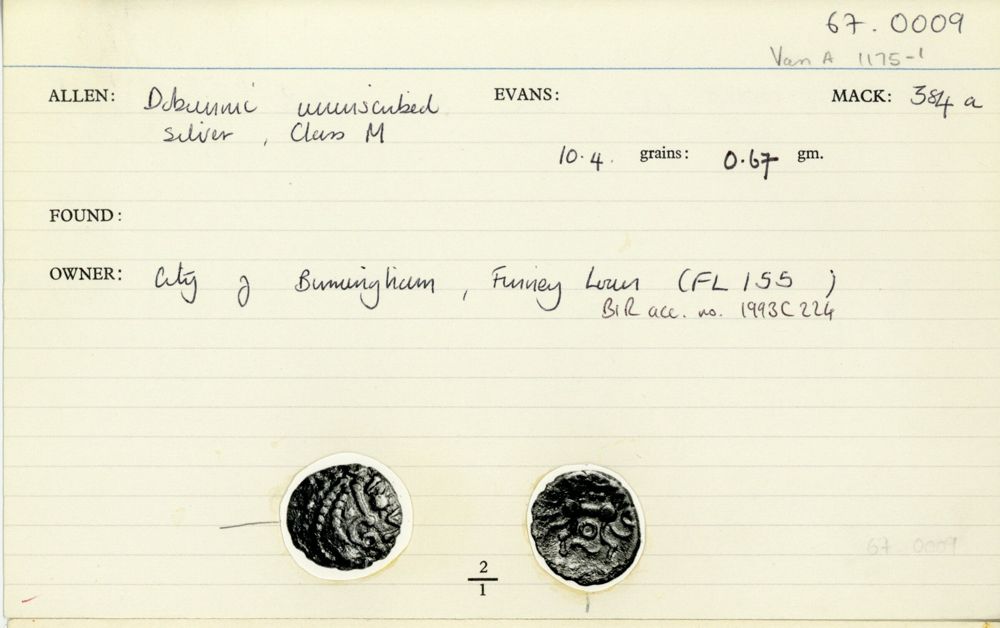 67.0009
Van A 1175-1
ALLEN: Dobunnic uninscribed EVANS: MACK: 384 a
silver, Class M
10.4 grains: 0.67 gm.
FOUND:
OWNER: City of Birmingham, Finney Loan (FL 155)
BIR acc. no. 1993C224
67 0009
2
1